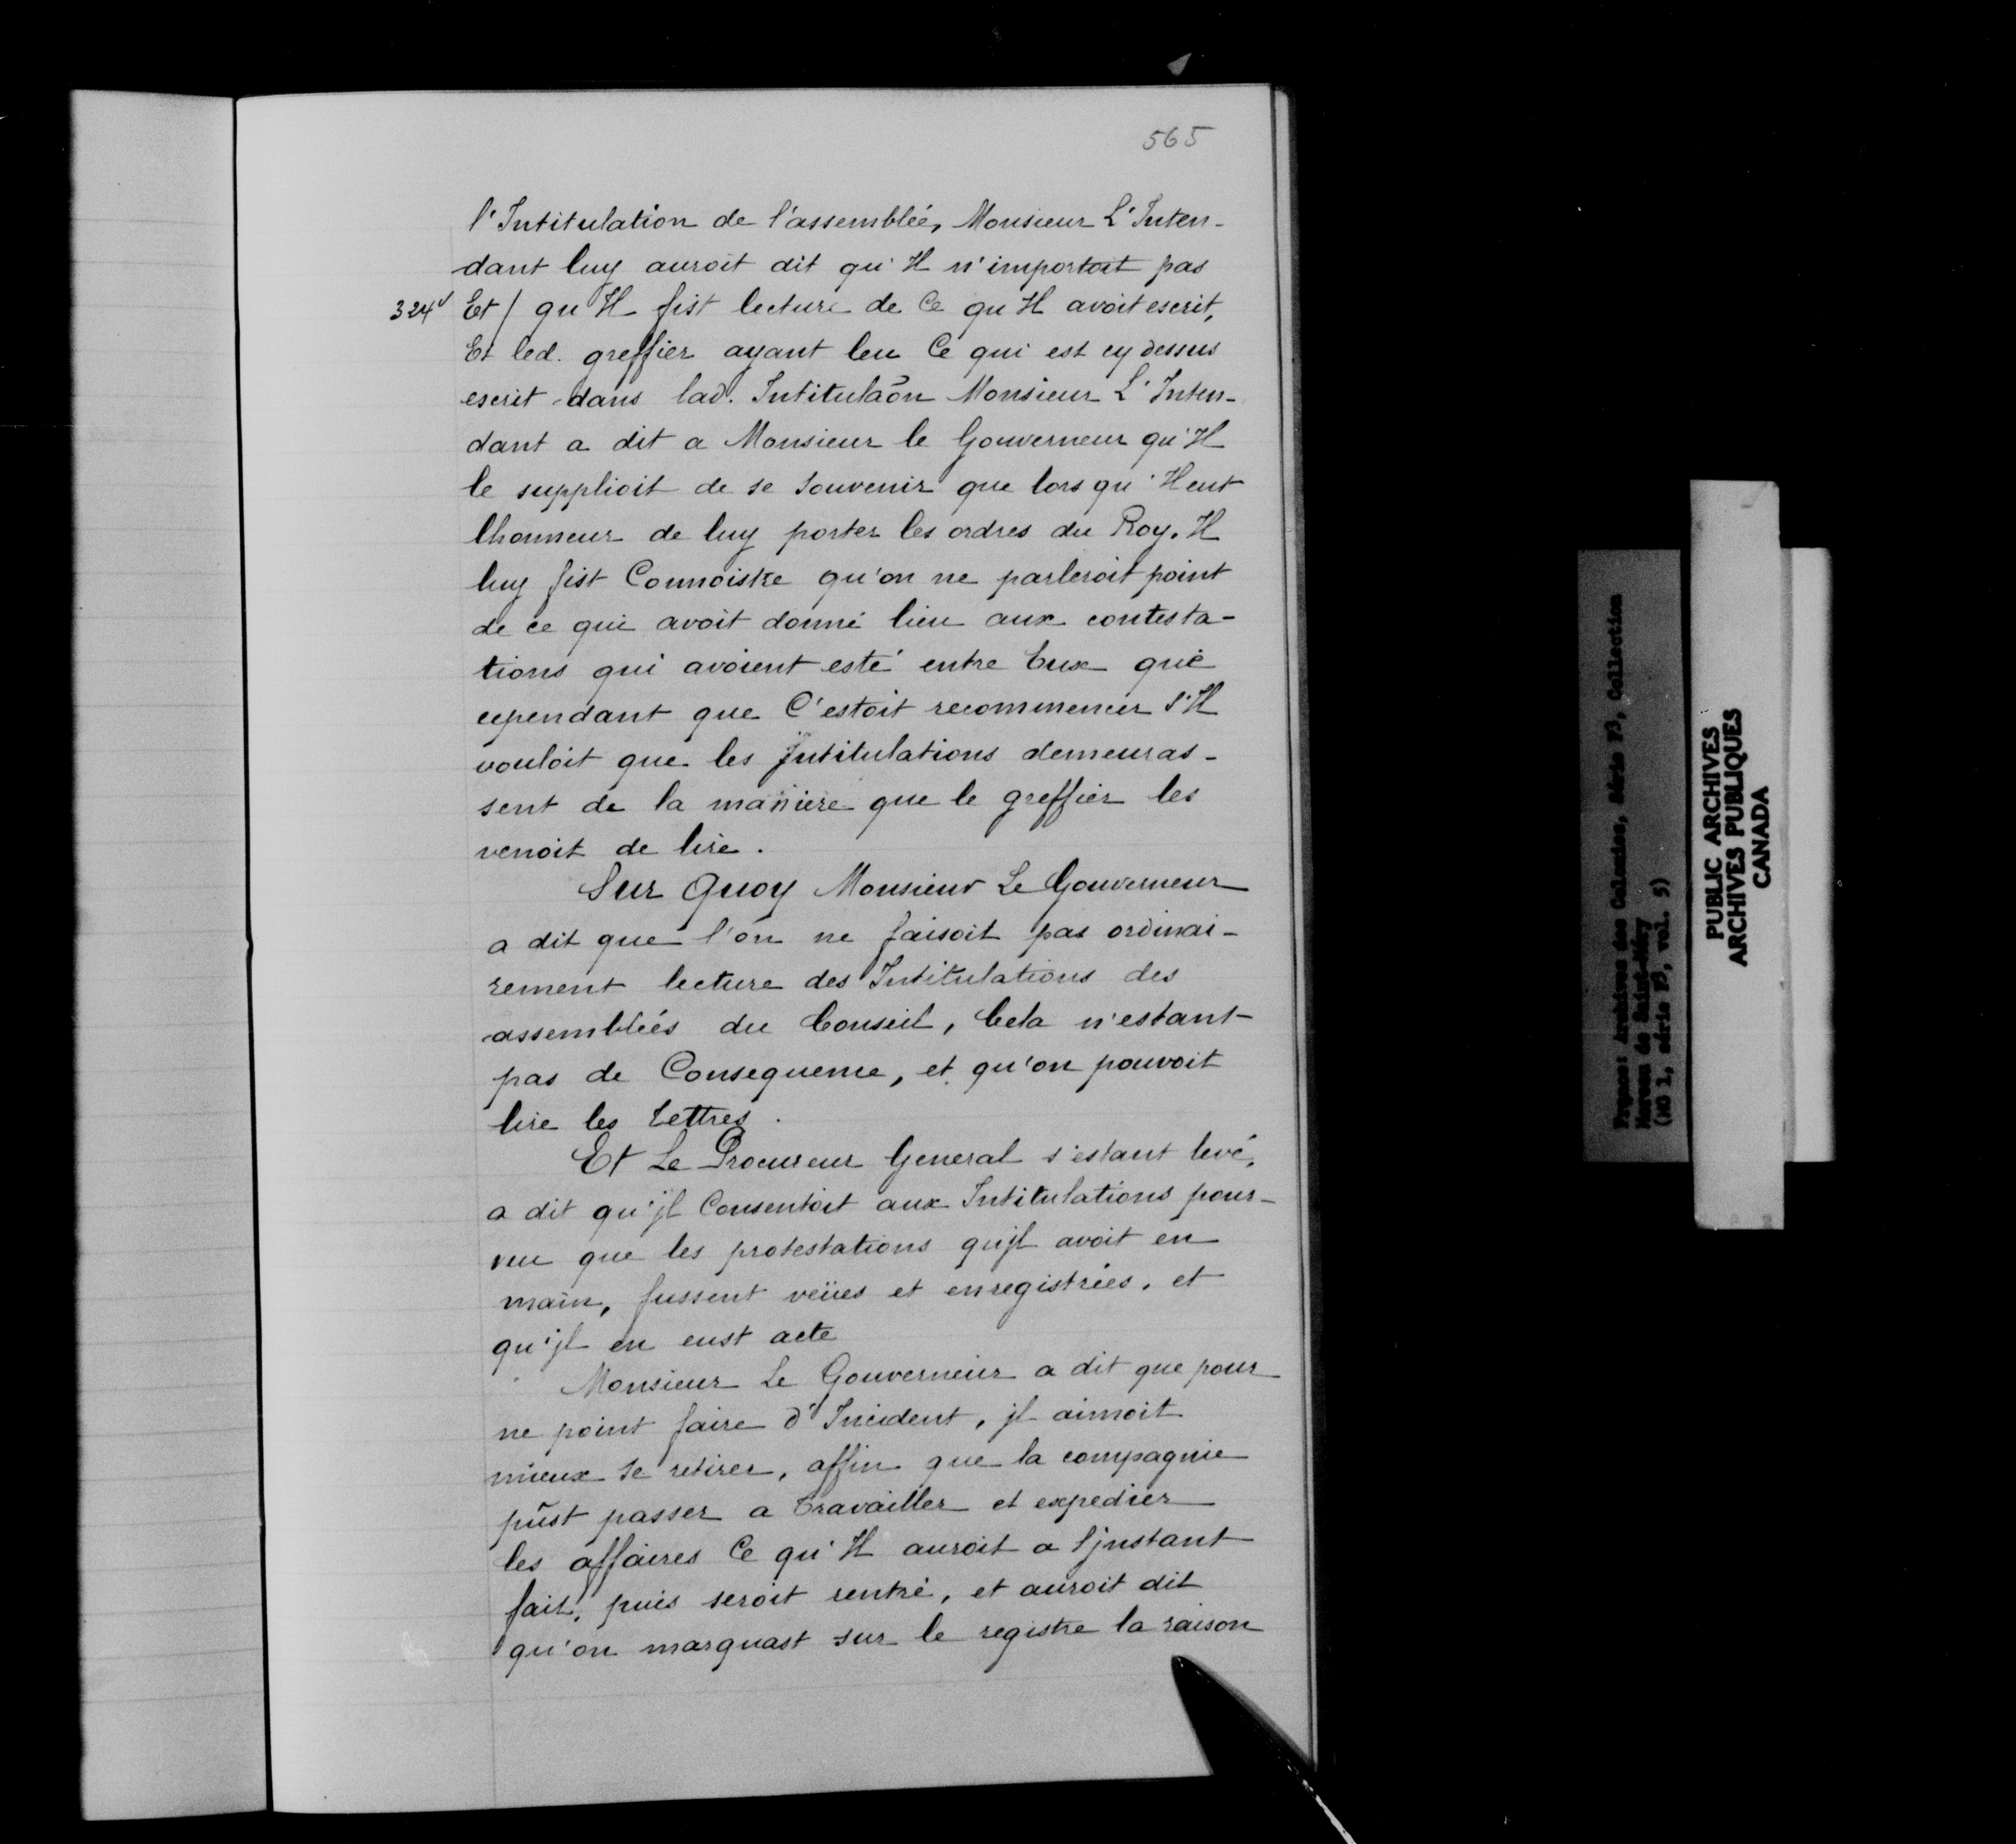 565
l'Intitulation de l'assemblée, Monsieur L'Inten-
dant luy auroit dit qu'Il n'importoit pas
324v Et / qu'Il fist lecture de Ce qu'Il avoit escrit,
Et led. greffier ayant leu Ce qui est cy dessus
escrit dans lad. Intitulaõn Monsieur L'Inten-
dant a dit a Monsieur le Gouverneur qu'Il
le supplioit de se souvenir que lors qu'Il eut
lhonneur de luy porter les ordres du Roy, Il
luy fist Connoistre qu'on ne parleroit point
de ce qui avoit donné lieu aux contesta-
tions qui avoient esté entre Eux que
cependant que C'estoit recommencer s'Il
vouloit que les Jntitulations demeuras-
sent de la maniere que le greffier les
venoit de lire.
Sur Quoy Monsieur Le Gouverneur
a dit que l'on ne faisoit pas ordinai-
rement lecture des Intitulations des
assemblées du Conseil, Cela n'estant
pas de Consequence, et qu'on pouvoit
lire les Lettres.
Et Le Procureur General s'estant levé,
a dit qu'jl Consentoit aux Intitulations pour-
veu que les protestations qu'jl avoit en
main, fussent veües et enregistrées, et
qu'jl en eust acte
Monsieur Le Gouverneur a dit que pour
ne point faire d'Incident, jl aimoit
mieux se retirer, affin que la compagnie
pûst passer a travailler et expedier
les affaires Ce qu'Il auroit a l'jnstant
fait, puis seroit rentré, et auroit dit
qu'on marquast sur le registre la raison
PUBLIC ARCHIVES
ARCHIVES PUBLIQUES
CANADA
France: Archives des Colonies, Série F3, Collection
Moreau de Saint-Méry
(MG 1, série F3, vol. 5)